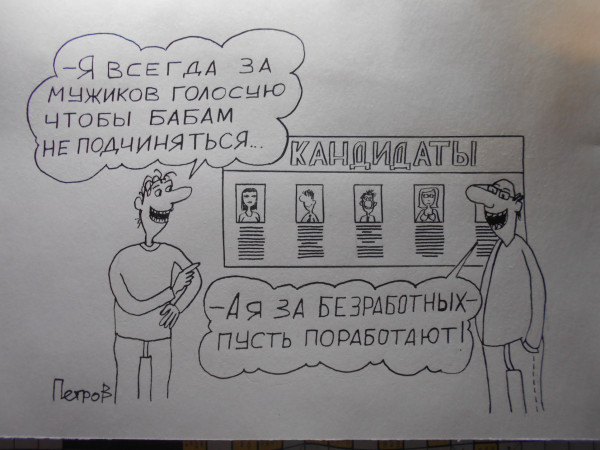 -Я ВСЕГДА ЗА
МУЖИКОВ ГОЛОСУЮ
ЧТОБЫ БАБАМ
НЕ ПОДЧИНЯТЬСЯ...
КАНДИДАТЫ
-А Я ЗА БЕЗРАБОТНЫХ-
ПУСТЬ ПОРАБОТАЮТ!
Петров